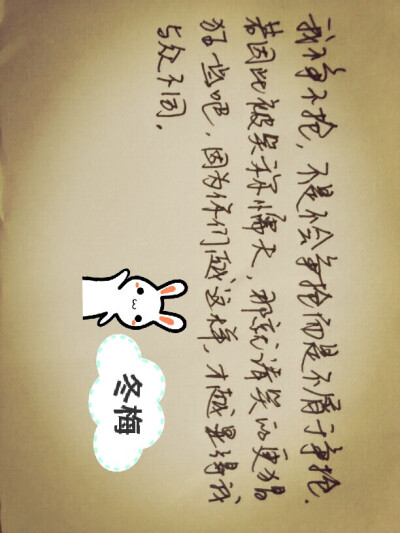 我不争不抢，不是不会争抢而是不屑于争抢.
若因此被笑称懦夫，那就请笑的更猖
狂些吧，因为你们越这样，才越显得我
与众不同.
冬梅